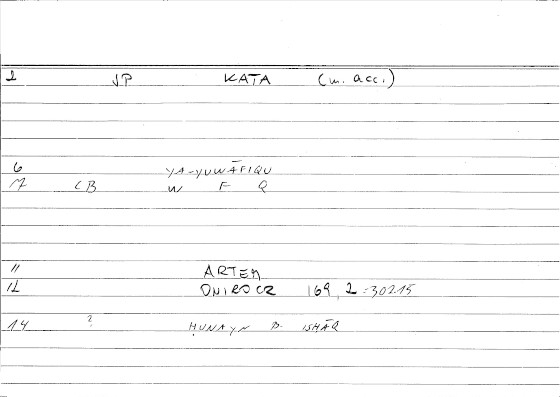 1 JP KATA (m. acc.)
6 YA-YUWĀFIQU
7 CB W F Q
11 ARTEM
12 ONIROCR 169, 2 = 30215
14 ? ḤUNAYN B. ISḤĀQ